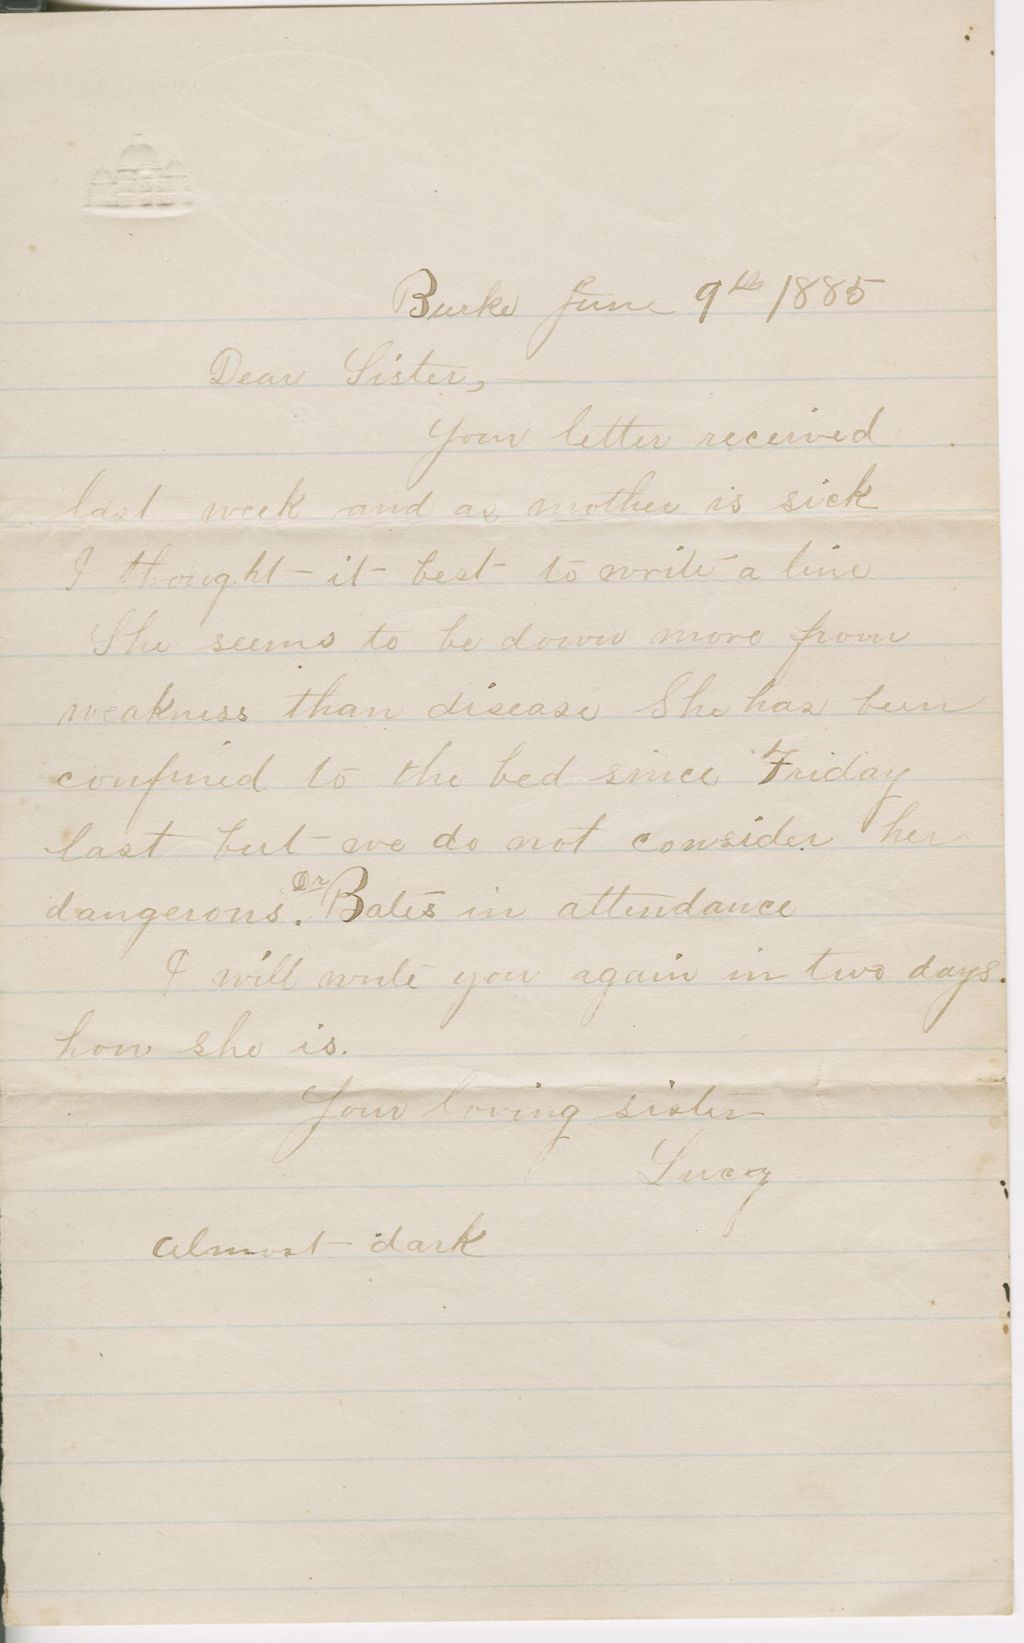 Burke June 9th 1885
Dear Sister,
Your letter received
last week and as mother is sick
I thought it best to write a line
She seems to be down more from
weakness than disease She has been
confined to the bed since Friday
last but we do not consider her
dangerous. Dr Bates in attendance
I will write you again in two days.
how she is.
Your loving sister
Lucy
almost dark